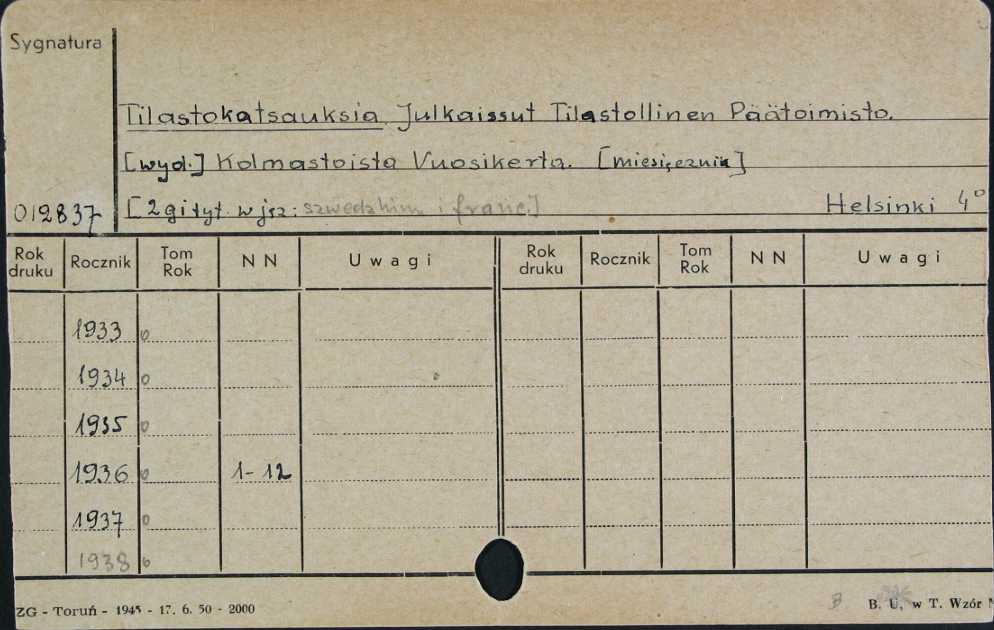 Sygnatura
Tilastokatsauksia Julkaissut Tilastollinen Päätoimisto.
[wyd.] Kolmastoista Vuosikerta. [miesięcznik]
012837 [2gi tyt. w jęz: szwedzkim i franc.] Helsinki 4°
Rok druku Rocznik Tom Rok N N Uwagi Rok druku Rocznik Tom Rok N N Uwagi
1933 0
1934 0
1935 0
1936 0 1-12
1937 0
1938 0
ZG - Toruń - 1945 - 17. 6. 50 - 2000 B B. U. w T. Wzór N